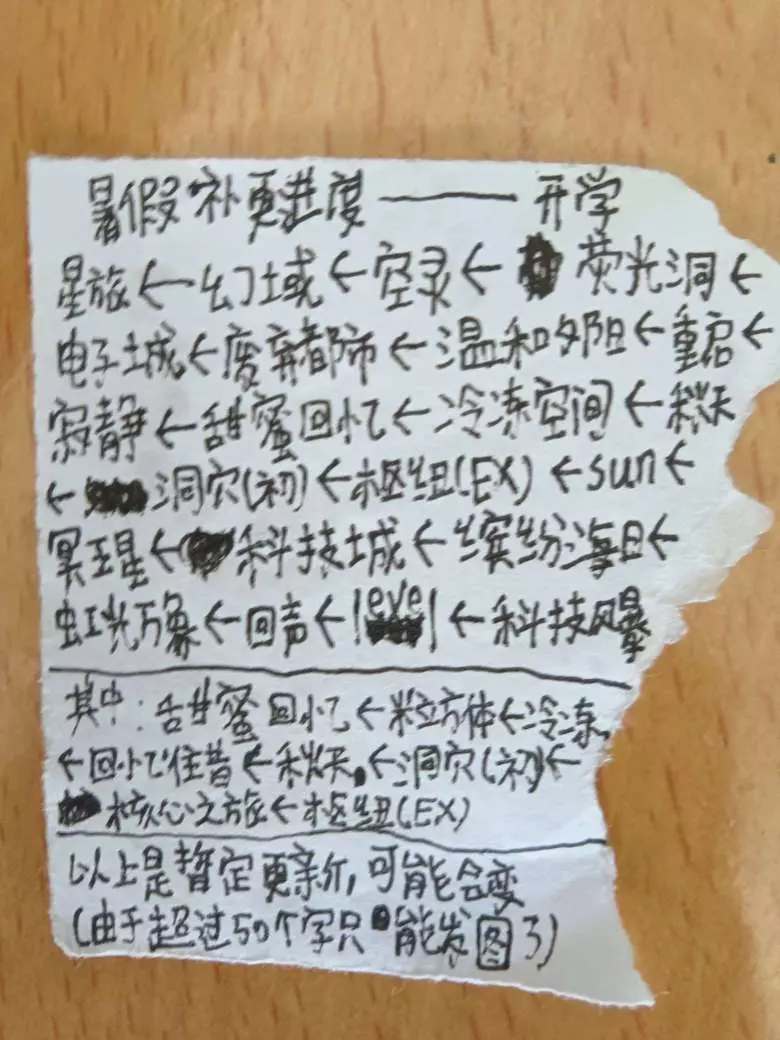 暑假补更进度——开学
星旅←幻域←空灵←荧光洞←
电子城←废弃都市←温和夕阳←重启←
寂静←甜蜜回忆←冷冻空间←秋天
←洞穴(初)←枢纽(EX)←sun←
冥王星←科技城←缤纷海日←
虹光万象←回声←level←科技风暴
其中:甜蜜回忆←粒立方体←冷冻
←回忆往昔←秋天←洞穴(初)←
核心之旅←枢纽(EX)
以上是暂定更新,可能会变
(由于超过50个字只能发图了)